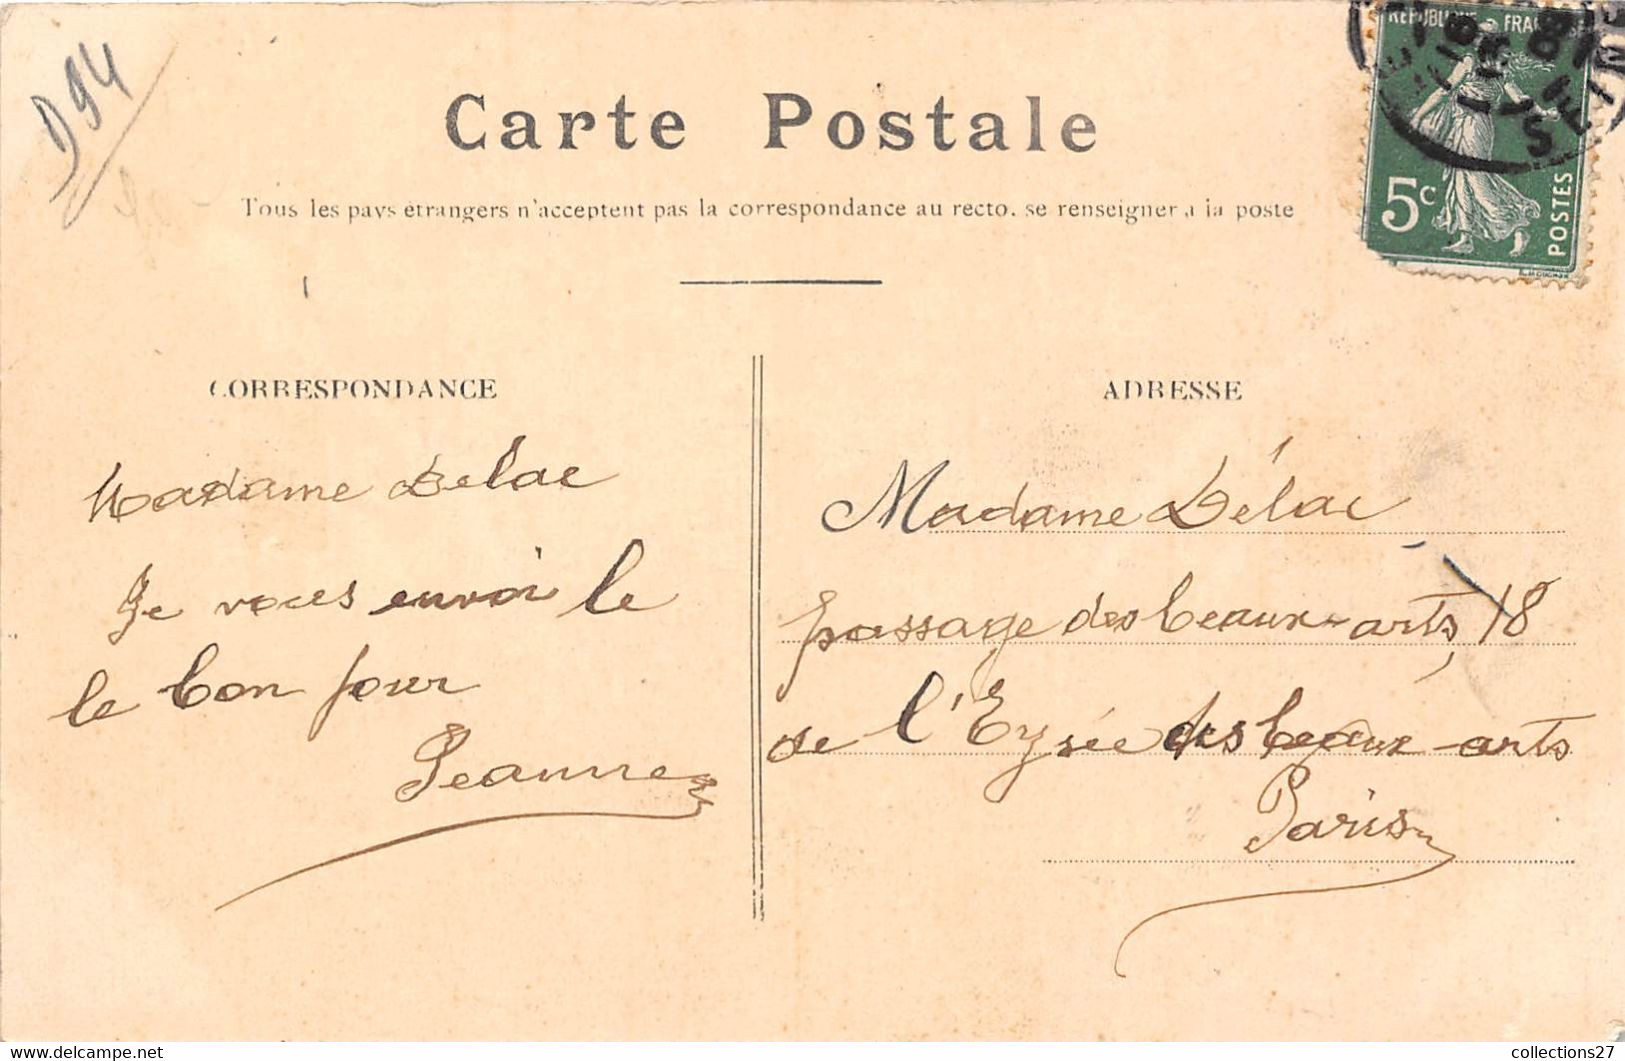 D94
Carte Postale
Tous les pays étrangers n'acceptent pas la correspondance au recto. se renseigner a la poste
REPUBLIQUE FRANÇAISE
5c
POSTES
SEINE
CORRESPONDANCE
Madame Delac
Je voues envoi le
le bon jour
Jeanne
ADRESSE
Madame Délac
passage des beaux-arts, 18
de l'Eysée des beaux-arts
Paris
collections27